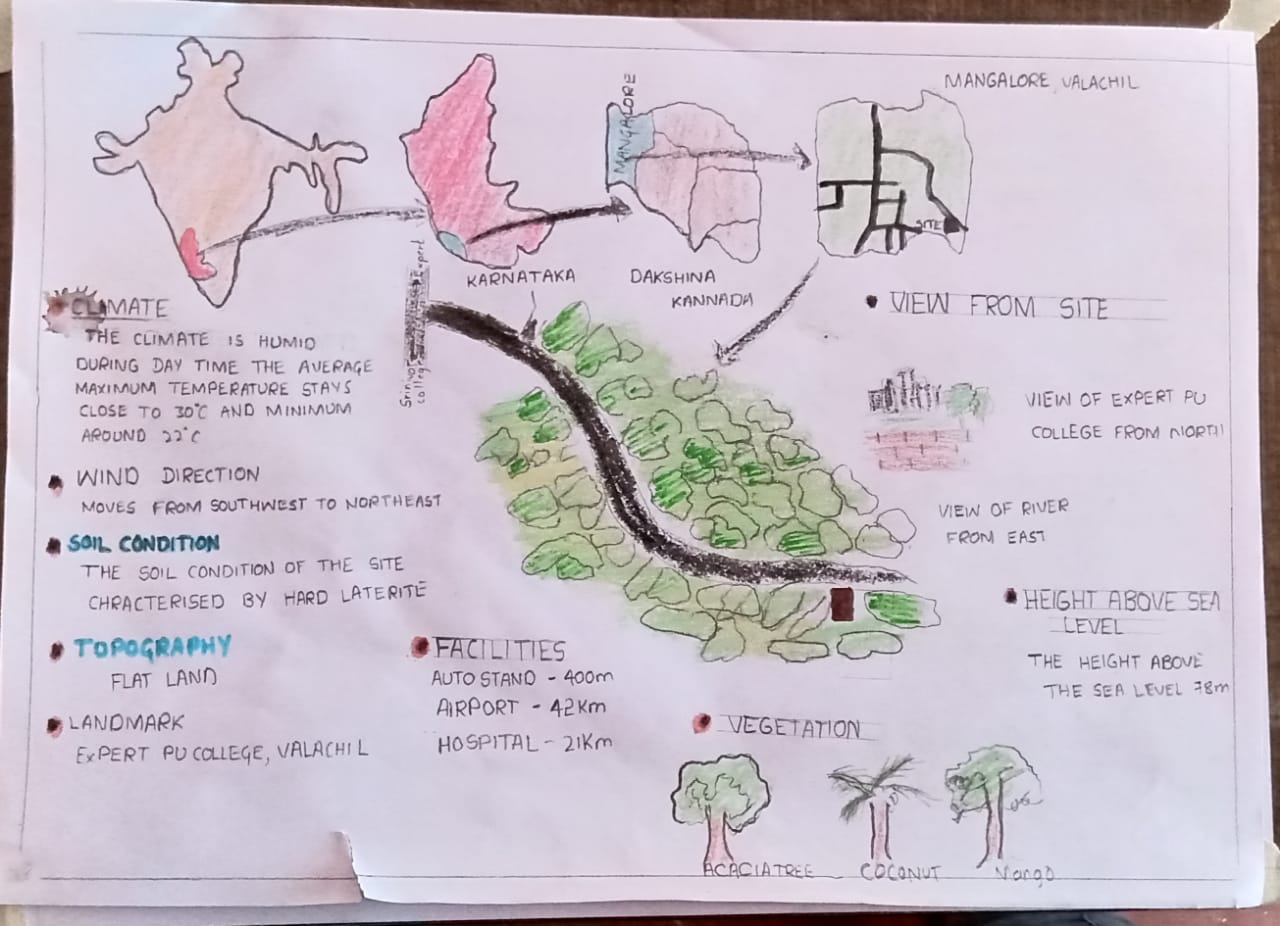 MANGALORE, VALACHIL
MANGALORE
SITE
KARNATAKA
DAKSHINA
KANNADA
CLIMATE
THE CLIMATE IS HUMID
DURING DAY TIME THE AVERAGE
MAXIMUM TEMPERATURE STAYS
CLOSE TO 30°C AND MINIMUM
AROUND 22°C
WIND DIRECTION
MOVES FROM SOUTHWEST TO NORTHEAST
SOIL CONDITION
THE SOIL CONDITION OF THE SITE
CHRACTERISED BY HARD LATERITE
TOPOGRAPHY
FLAT LAND
LANDMARK
EXPERT PU COLLEGE, VALACHIL
Expert
college
FACILITIES
AUTO STAND - 400m
AIRPORT - 42Km
HOSPITAL - 21Km
VIEW FROM SITE
VIEW OF EXPERT PU
COLLEGE FROM NORTH
VIEW OF RIVER
FROM EAST
HEIGHT ABOVE SEA
LEVEL
THE HEIGHT ABOVE
THE SEA LEVEL 78m
VEGETATION
ACACIA TREE
COCONUT
Mango